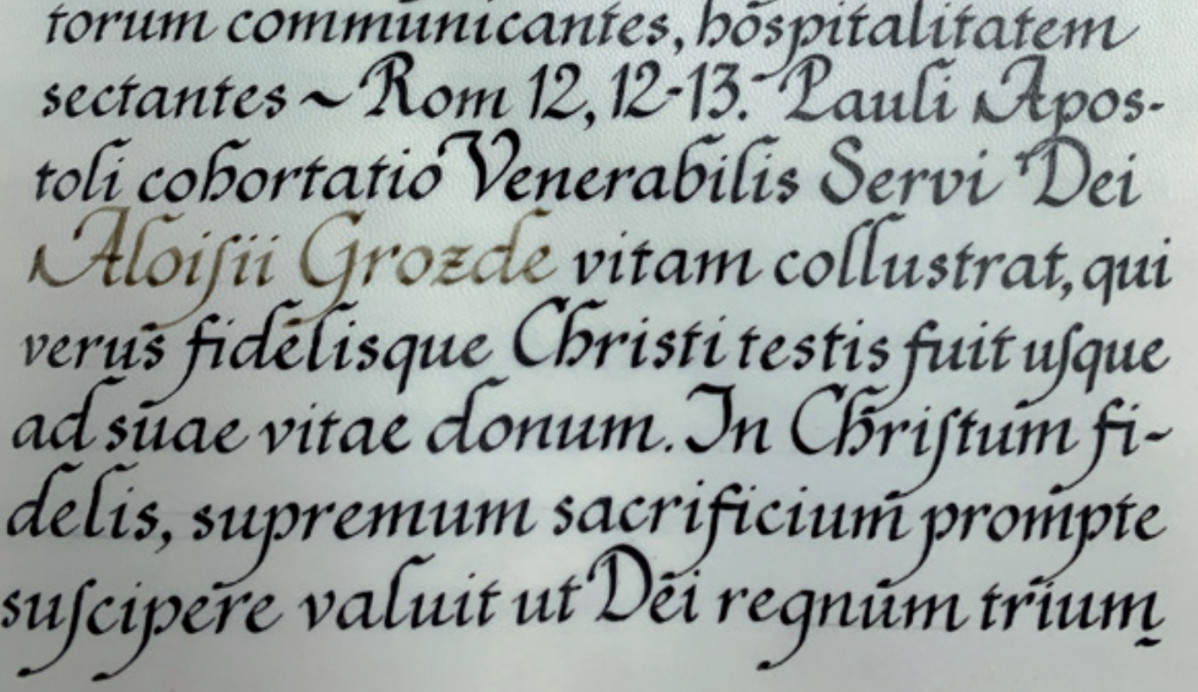 torum communicantes, hospitalitatem
sectantes ~ Rom 12, 12-13. Pauli Apos-
toli cohortatio Venerabilis Servi Dei
Aloiſii Grozde vitam collustrat, qui
verus fidelisque Christi testis fuit uſque
ad suae vitae donum. In Chriſtum fi-
delis, supremum sacrificium prompte
suſcipere valuit ut Dei regnum trium